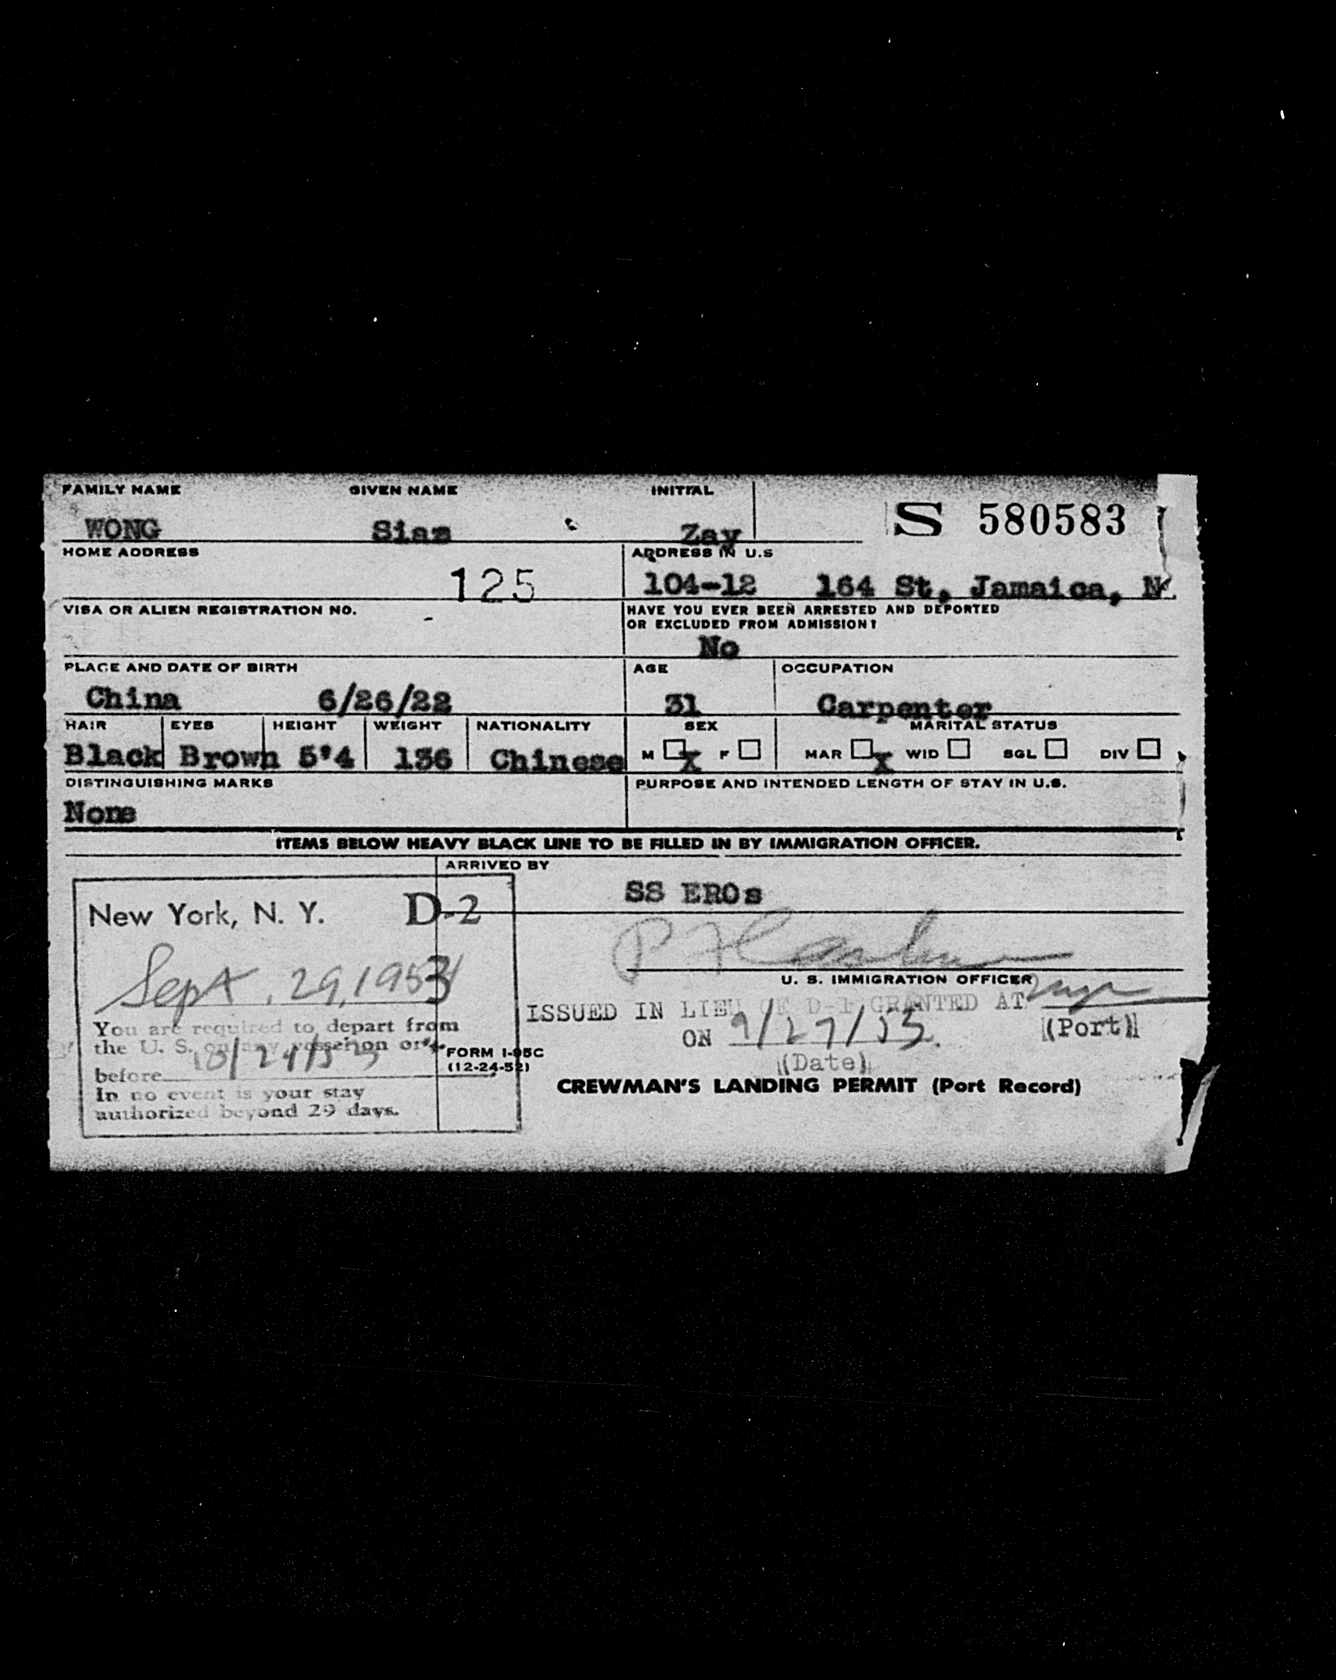 FAMILY NAME GIVEN NAME INITIAL
WONG Siam Zay S 580583
HOME ADDRESS ADDRESS IN U.S
125 104-12 164 St, Jamaica, N
VISA OR ALIEN REGISTRATION NO. HAVE YOU EVER BEEN ARRESTED AND DEPORTED
OR EXCLUDED FROM ADMISSION?
- No
PLACE AND DATE OF BIRTH AGE OCCUPATION
China 6/26/22 31 Carpenter
HAIR EYES HEIGHT WEIGHT NATIONALITY SEX MARITAL STATUS
Black Brown 5'4 136 Chinese M X F MAR X WID SGL DIV
DISTINGUISHING MARKS PURPOSE AND INTENDED LENGTH OF STAY IN U.S.
None
ITEMS BELOW HEAVY BLACK LINE TO BE FILLED IN BY IMMIGRATION OFFICER.
ARRIVED BY
SS EROs
New York, N. Y. D-2
Sept. 29, 1953
U. S. IMMIGRATION OFFICER
ISSUED IN LIEU OF D-1 GRANTED AT
You are required to depart from
ON 9/27/53. (Port)
the U. S. on any vessel on or
FORM I-95C
before
(12-24-52) (Date)
In no event is your stay
authorized beyond 29 days.
CREWMAN'S LANDING PERMIT (Port Record)